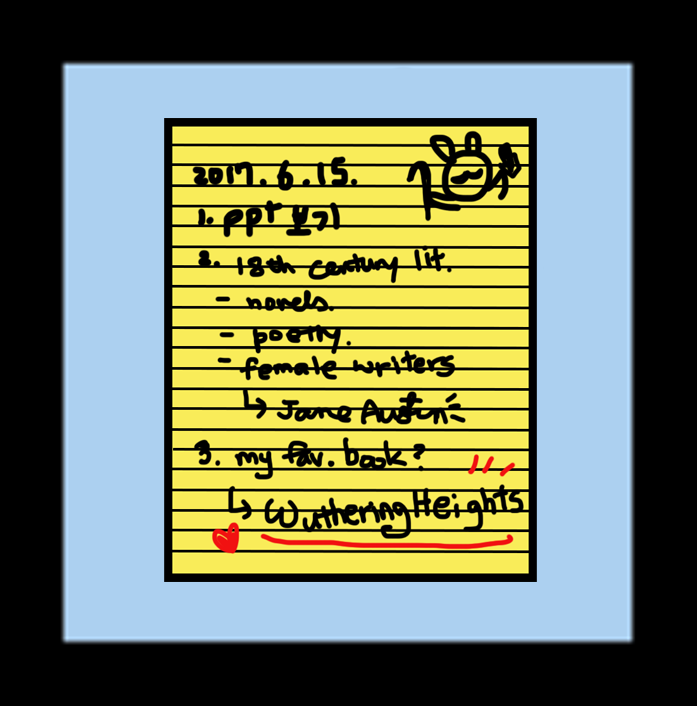 2017.6.15.
1. ppt 보기
2. 18th century lit.
- novels.
- poetry.
- female writers
↳ Jane Austen
3. my fav. book?
↳ Wuthering Heights